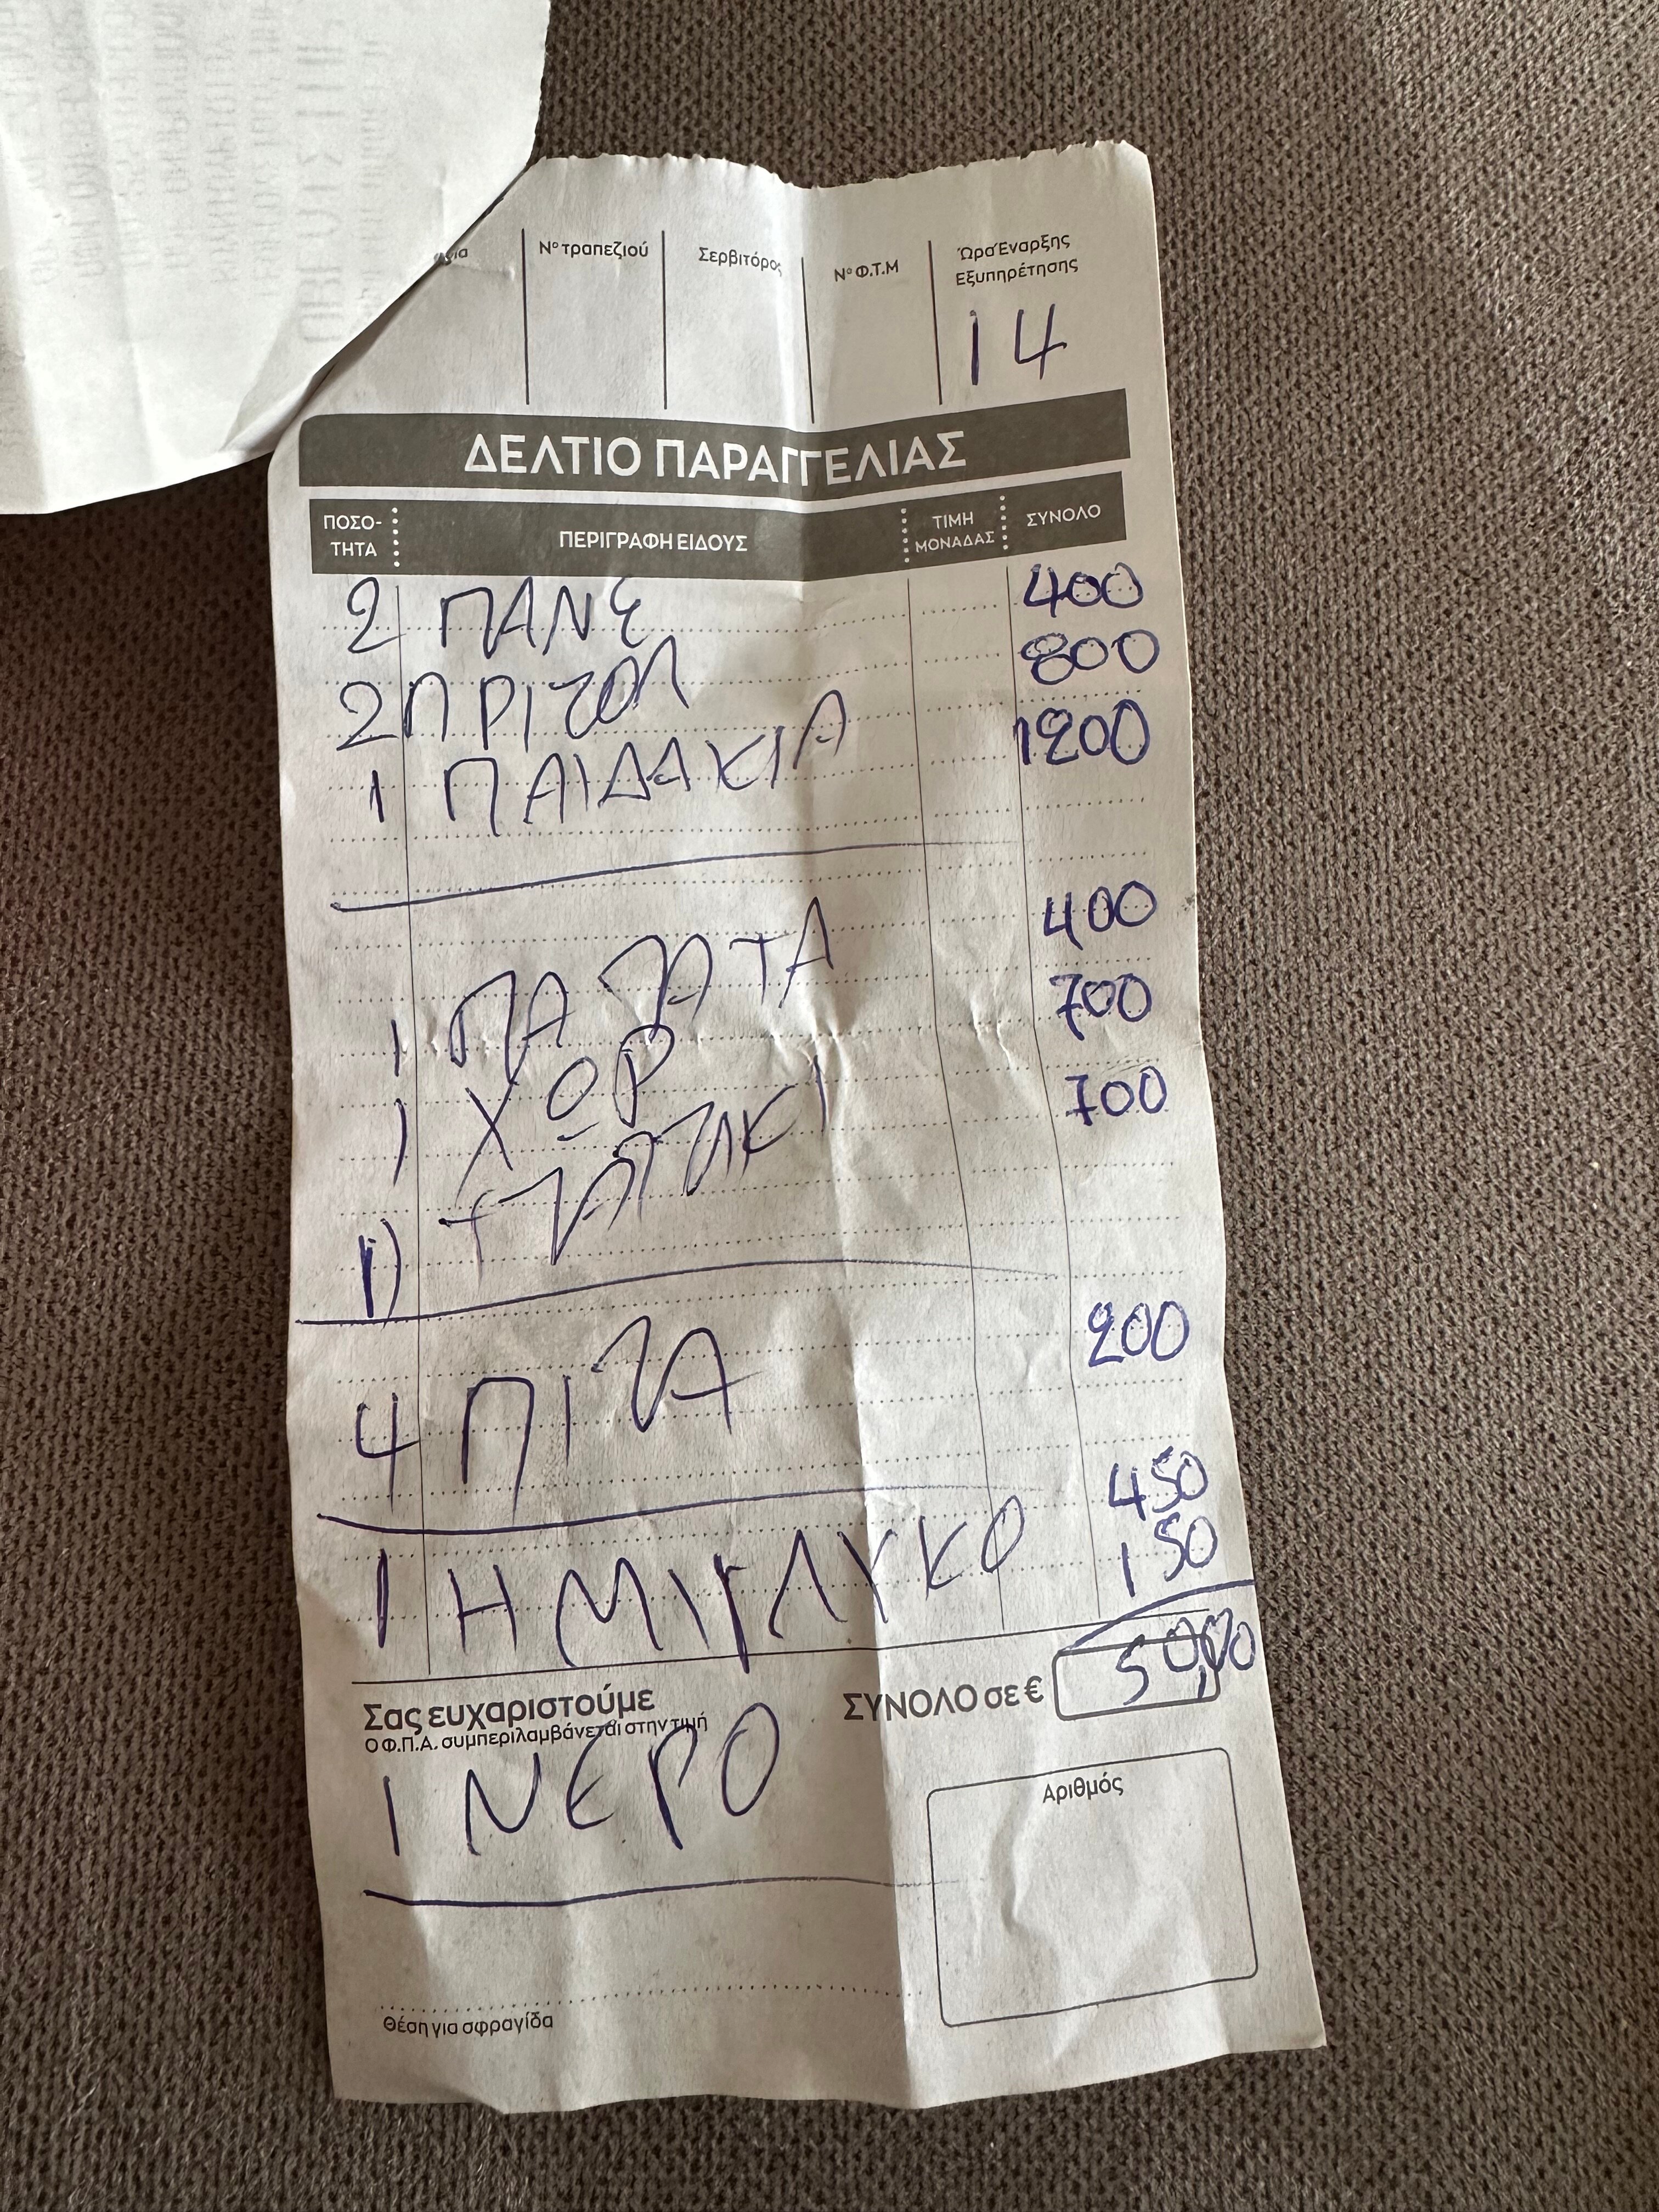 Νο τραπεζιού Σερβιτόρος Νο Φ.Τ.Μ Ώρα Έναρξης Εξυπηρέτησης
14
ΔΕΛΤΙΟ ΠΑΡΑΓΓΕΛΙΑΣ
ΠΟΣΟ-ΤΗΤΑ ΠΕΡΙΓΡΑΦΗ ΕΙΔΟΥΣ ΤΙΜΗ ΜΟΝΑΔΑΣ ΣΥΝΟΛΟ
2 ΠΑΝΕ 400
2 ΠΡΙΖΟΛ 800
1 ΠΑΙΔΑΚΙΑ 1200
1 ΠΑΤΑΤΑ 400
1 ΧΩΡ 700
1 ΤΖΑΤΖΙΚΙ 700
4 ΠΙΤΑ 200
1 ΗΜΙΓΛΥΚΟ 450
150
Σας ευχαριστούμε ΣΥΝΟΛΟ σε € 50,00
Ο Φ.Π.Α. συμπεριλαμβάνεται στην τιμή
1 ΝΕΡΟ
Αριθμός
Θέση για σφραγίδα